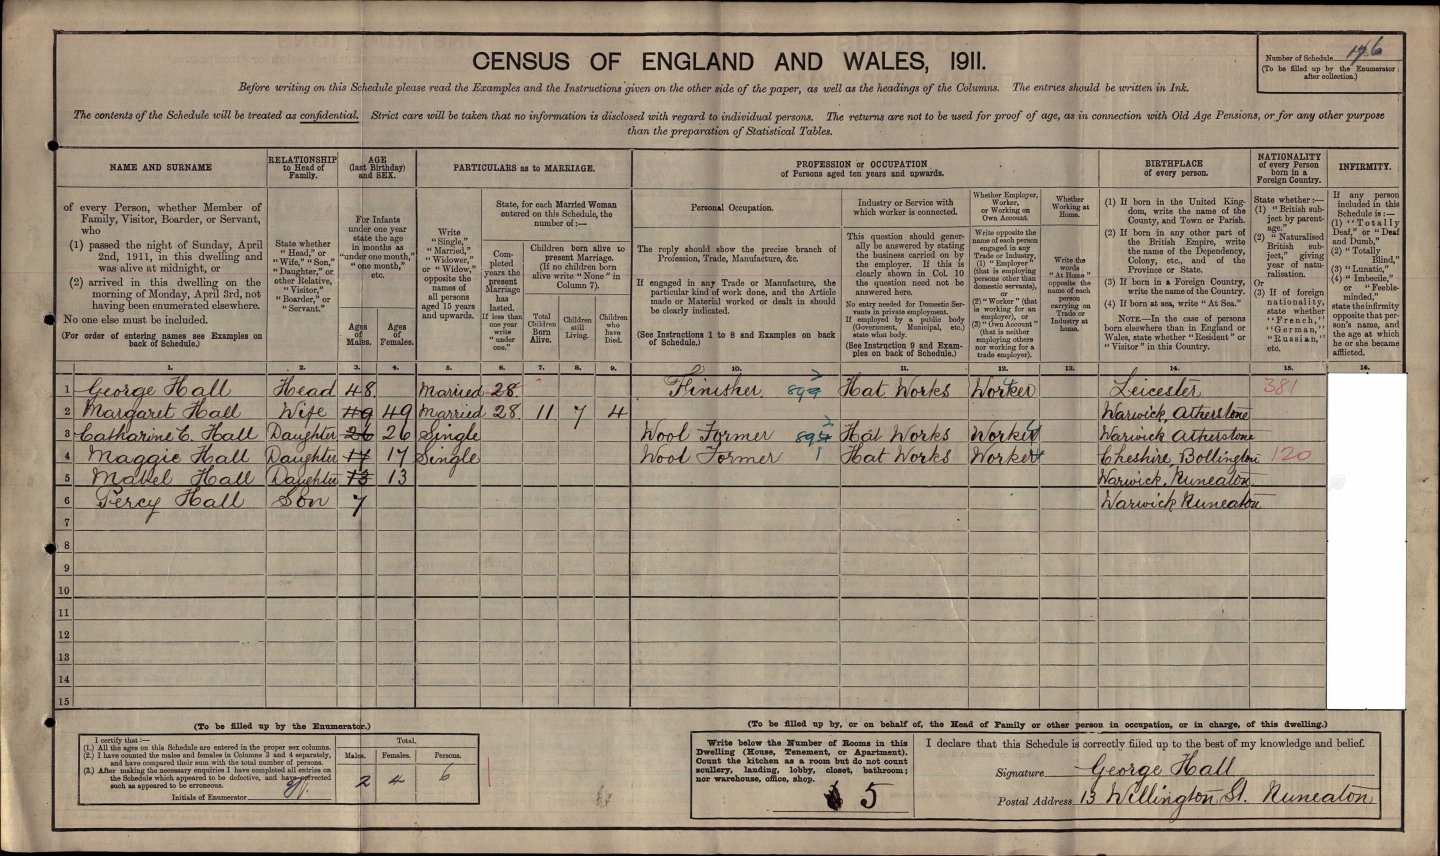 CENSUS OF ENGLAND AND WALES, 1911.
Number of Schedule 176
(To be filled up by the Enumerator after collection.)
Before writing on this Schedule please read the Examples and the Instructions given on the other side of the paper, as well as the headings of the Columns. The entries should be written in Ink.
The contents of the Schedule will be treated as confidential. Strict care will be taken that no information is disclosed with regard to individual persons. The returns are not to be used for proof of age, as in connection with Old Age Pensions, or for any other purpose
than the preparation of Statistical Tables.
NAME AND SURNAME
of every Person, whether Member of
Family, Visitor, Boarder, or Servant,
who
(1) passed the night of Sunday, April
2nd, 1911, in this dwelling and
was alive at midnight, or
(2) arrived in this dwelling on the
morning of Monday, April 3rd, not
having been enumerated elsewhere.
No one else must be included.
(For order of entering names see Examples on
back of Schedule.)
RELATIONSHIP
to Head of
Family.
State whether
"Head," or
"Wife," "Son,"
"Daughter," or
other Relative,
"Visitor,"
"Boarder," or
"Servant."
AGE
(last Birthday)
and SEX.
For Infants
under one year
state the age
in months as
"under one month,"
"one month,"
etc.
Ages
of
Males.
Ages
of
Females.
PARTICULARS as to MARRIAGE.
Write
"Single,"
"Married,"
"Widower,"
or "Widow,"
opposite the
names of
all persons
aged 15 years
and upwards.
State, for each Married Woman
entered on this Schedule, the
number of :—
Completed
years the
present
Marriage
has
lasted.
If less than
one year
write
"under
one."
Children born alive to
present Marriage.
(If no children born
alive write "None" in
Column 7).
Total
Children
Born
Alive.
Children
still
Living.
Children
who
have
Died.
PROFESSION or OCCUPATION
of Persons aged ten years and upwards.
Personal Occupation.
The reply should show the precise branch of
Profession, Trade, Manufacture, &c.
If engaged in any Trade or Manufacture, the
particular kind of work done, and the Article
made or Material worked or dealt in should
be clearly indicated.
(See Instructions 1 to 8 and Examples on back
of Schedule.)
Industry or Service with
which worker is connected.
This question should generally
be answered by stating
the business carried on by
the employer. If this is
clearly shown in Col. 10
the question need not be
answered here.
No entry needed for Domestic Servants
in private employment.
If employed by a public body
(Government, Municipal, etc.)
state what body.
(See Instruction 9 and Examples
on back of Schedule.)
Whether Employer,
Worker,
or Working on
Own Account.
Write opposite the
name of each person
engaged in any
Trade or Industry,
(1) "Employer"
(that is employing
persons other than
domestic servants),
or
(2) "Worker" (that
is working for an
employer), or
(3) "Own Account"
(that is neither
employing others
nor working for a
trade employer).
Whether
Working at
Home.
Write the
words
"At Home"
opposite the
name of each
person
carrying on
Trade or
Industry at
home.
BIRTHPLACE
of every person.
(1) If born in the United Kingdom,
write the name of the
County, and Town or Parish.
(2) If born in any other part of
the British Empire, write
the name of the Dependency,
Colony, etc., and of the
Province or State.
(3) If born in a Foreign Country,
write the name of the Country.
(4) If born at sea, write "At Sea."
NOTE.—In the case of persons
born elsewhere than in England or
Wales, state whether "Resident" or
"Visitor" in this Country.
NATIONALITY
of every Person
born in a
Foreign Country.
State whether :—
(1) "British subject
by parentage."
(2) "Naturalised
British subject,"
giving
year of naturalisation.
Or
(3) If of foreign
nationality,
state whether
"French,"
"German,"
"Russian,"
etc.
INFIRMITY.
If any person
included in this
Schedule is :—
(1) "Totally
Deaf," or "Deaf
and Dumb,"
(2) "Totally
Blind,"
(3) "Lunatic,"
(4) "Imbecile,"
or "Feeble-minded,"
state the infirmity
opposite that person's
name, and
the age at which
he or she became
afflicted.
1. 2. 3. 4. 5. 6. 7. 8. 9. 10. 11. 12. 13. 14. 15. 16.
1 George Hall Head 48 Married 28 Finisher Hat Works Worker Leicester 381
2 Margaret Hall Wife 49 49 Married 28 11 7 4 Warwick, Atherstone
3 Catharine E. Hall Daughter 26 26 Single Wool Former Hat Works Worker Warwick Atherstone
4 Maggie Hall Daughter 17 17 Single Wool Former Hat Works Worker Cheshire, Bollington 120
5 Mabel Hall Daughter 13 13 Warwick, Nuneaton
6 Percy Hall Son 7 Warwick Nuneaton
7
8
9
10
11
12
13
14
15
(To be filled up by the Enumerator.)
I certify that :—
(1.) All the ages on this Schedule are entered in the proper sex columns.
(2.) I have counted the males and females in Columns 3 and 4 separately,
and have compared their sum with the total number of persons.
(3.) After making the necessary enquiries I have completed all entries on
the Schedule which appeared to be defective, and have corrected
such as appeared to be erroneous.
Initials of Enumerator
Total.
Males. Females. Persons.
2 4 6
(To be filled up by, or on behalf of, the Head of Family or other person in occupation, or in charge, of this dwelling.)
Write below the Number of Rooms in this
Dwelling (House, Tenement, or Apartment).
Count the kitchen as a room but do not count
scullery, landing, lobby, closet, bathroom;
nor warehouse, office, shop.
5
I declare that this Schedule is correctly filled up to the best of my knowledge and belief.
Signature George Hall
Postal Address 13 Willington St. Nuneaton